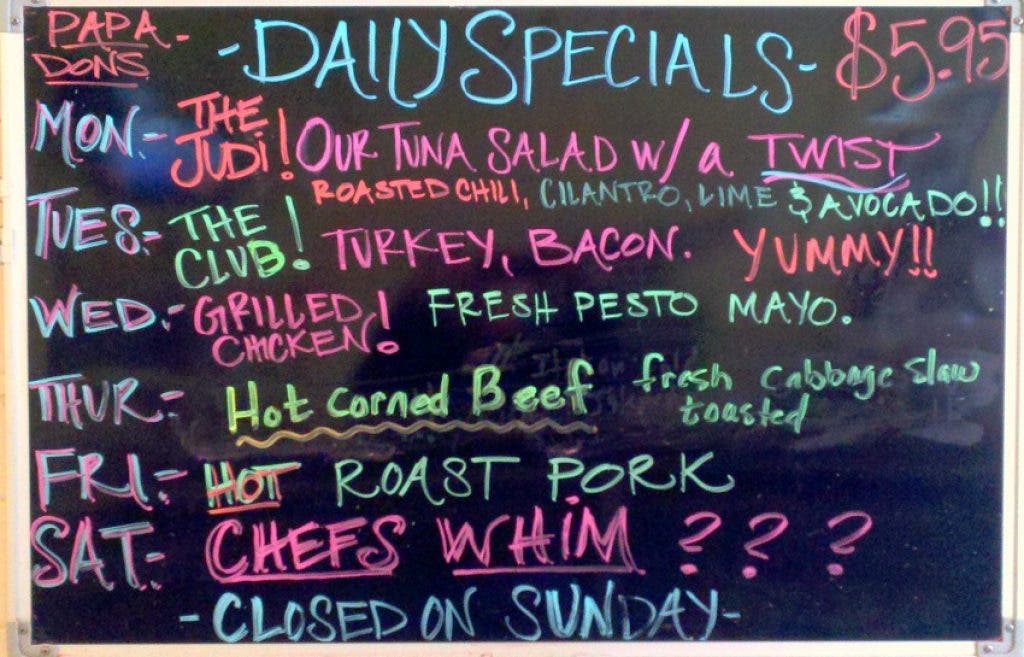 PAPA DONS - DAILY SPECIALS - $5.95
MON. - THE JUDI! OUR TUNA SALAD W/ a TWIST
ROASTED CHILI, CILANTRO, LIME & AVOCADO!!
TUES. - THE CLUB! TURKEY, BACON. YUMMY!!
WED. - GRILLED CHICKEN! FRESH PESTO MAYO.
THUR. - Hot corned Beef fresh cabbage slaw
toasted
FRI. - HOT ROAST PORK
SAT. - CHEFS WHIM ? ? ?
- CLOSED ON SUNDAY -